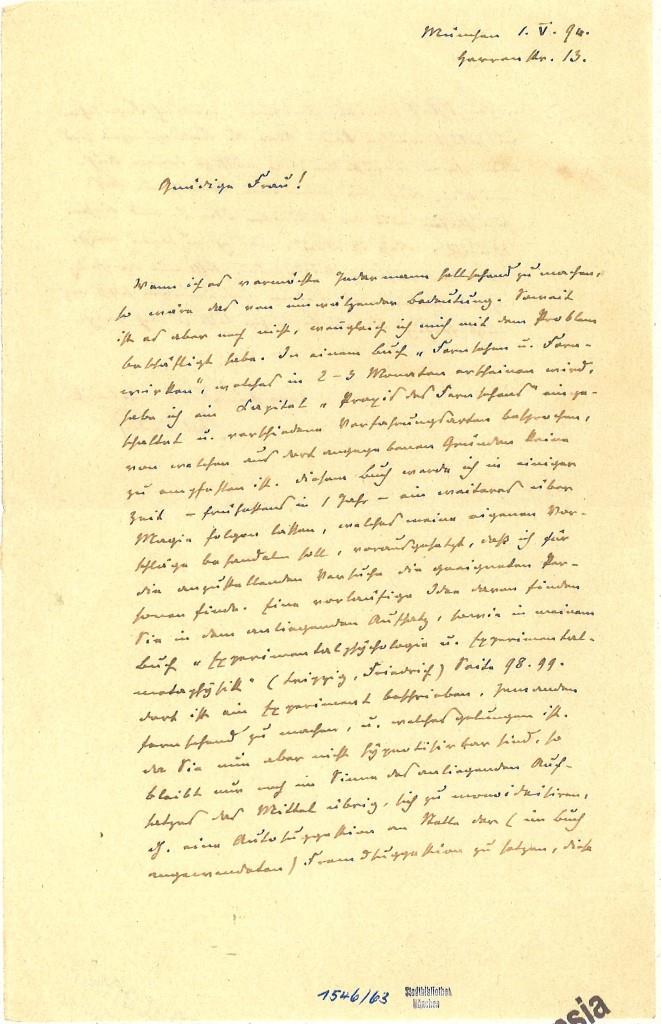 München 1. V. 94.
Herrenstr. 13.
Gnädige Frau!
Wenn ich es vermöchte Jedermann hellsehend zu machen,
so wäre das von umwälzender Bedeutung. Soweit
ist es aber noch nicht, wenngleich ich mich mit dem Problem
beschäftigt habe. In einem Buch „Fernsehen u. Fern-
wirken", welches in 2-3 Monaten erscheinen wird,
habe ich ein Capitel „Praxis des Fernsehens" einge-
schaltet u. verschiedene Verfahrungsarten besprochen,
von welchen aus dort angegebenen Gründen keine
zu empfehlen ist. Diesem Buch werde ich in einiger
Zeit - frühestens in 1 Jahr - ein weiteres über
Magie folgen lassen, welches meine eigenen Vor-
schläge behandeln soll, vorausgesetzt, daß ich für
die anzustellenden Versuche die geeigneten Per-
sonen finde. Eine vorläufige Idee davon finden
Sie in dem anliegenden Aufsatz, sowie in meinem
Buch „Experimentalpsychologie u. Experimental-
metaphysik" (Leipzig, Friedrich) Seite 98. 99.
Dort ist ein Experiment beschrieben, Jemanden
fernsehend zu machen, u. welches gelungen ist.
Da Sie nun aber nicht hypnotisirbar sind, so
bleibt nur noch im Sinne des anliegenden Auf-
satzes das Mittel übrig, sich zu monoideisiren,
d. h. eine Autosuggestion an Stelle der (im Buch
angewendeten) Fremdsuggestion zu setzen, diese
1546/63
Stadtbibliothek
München